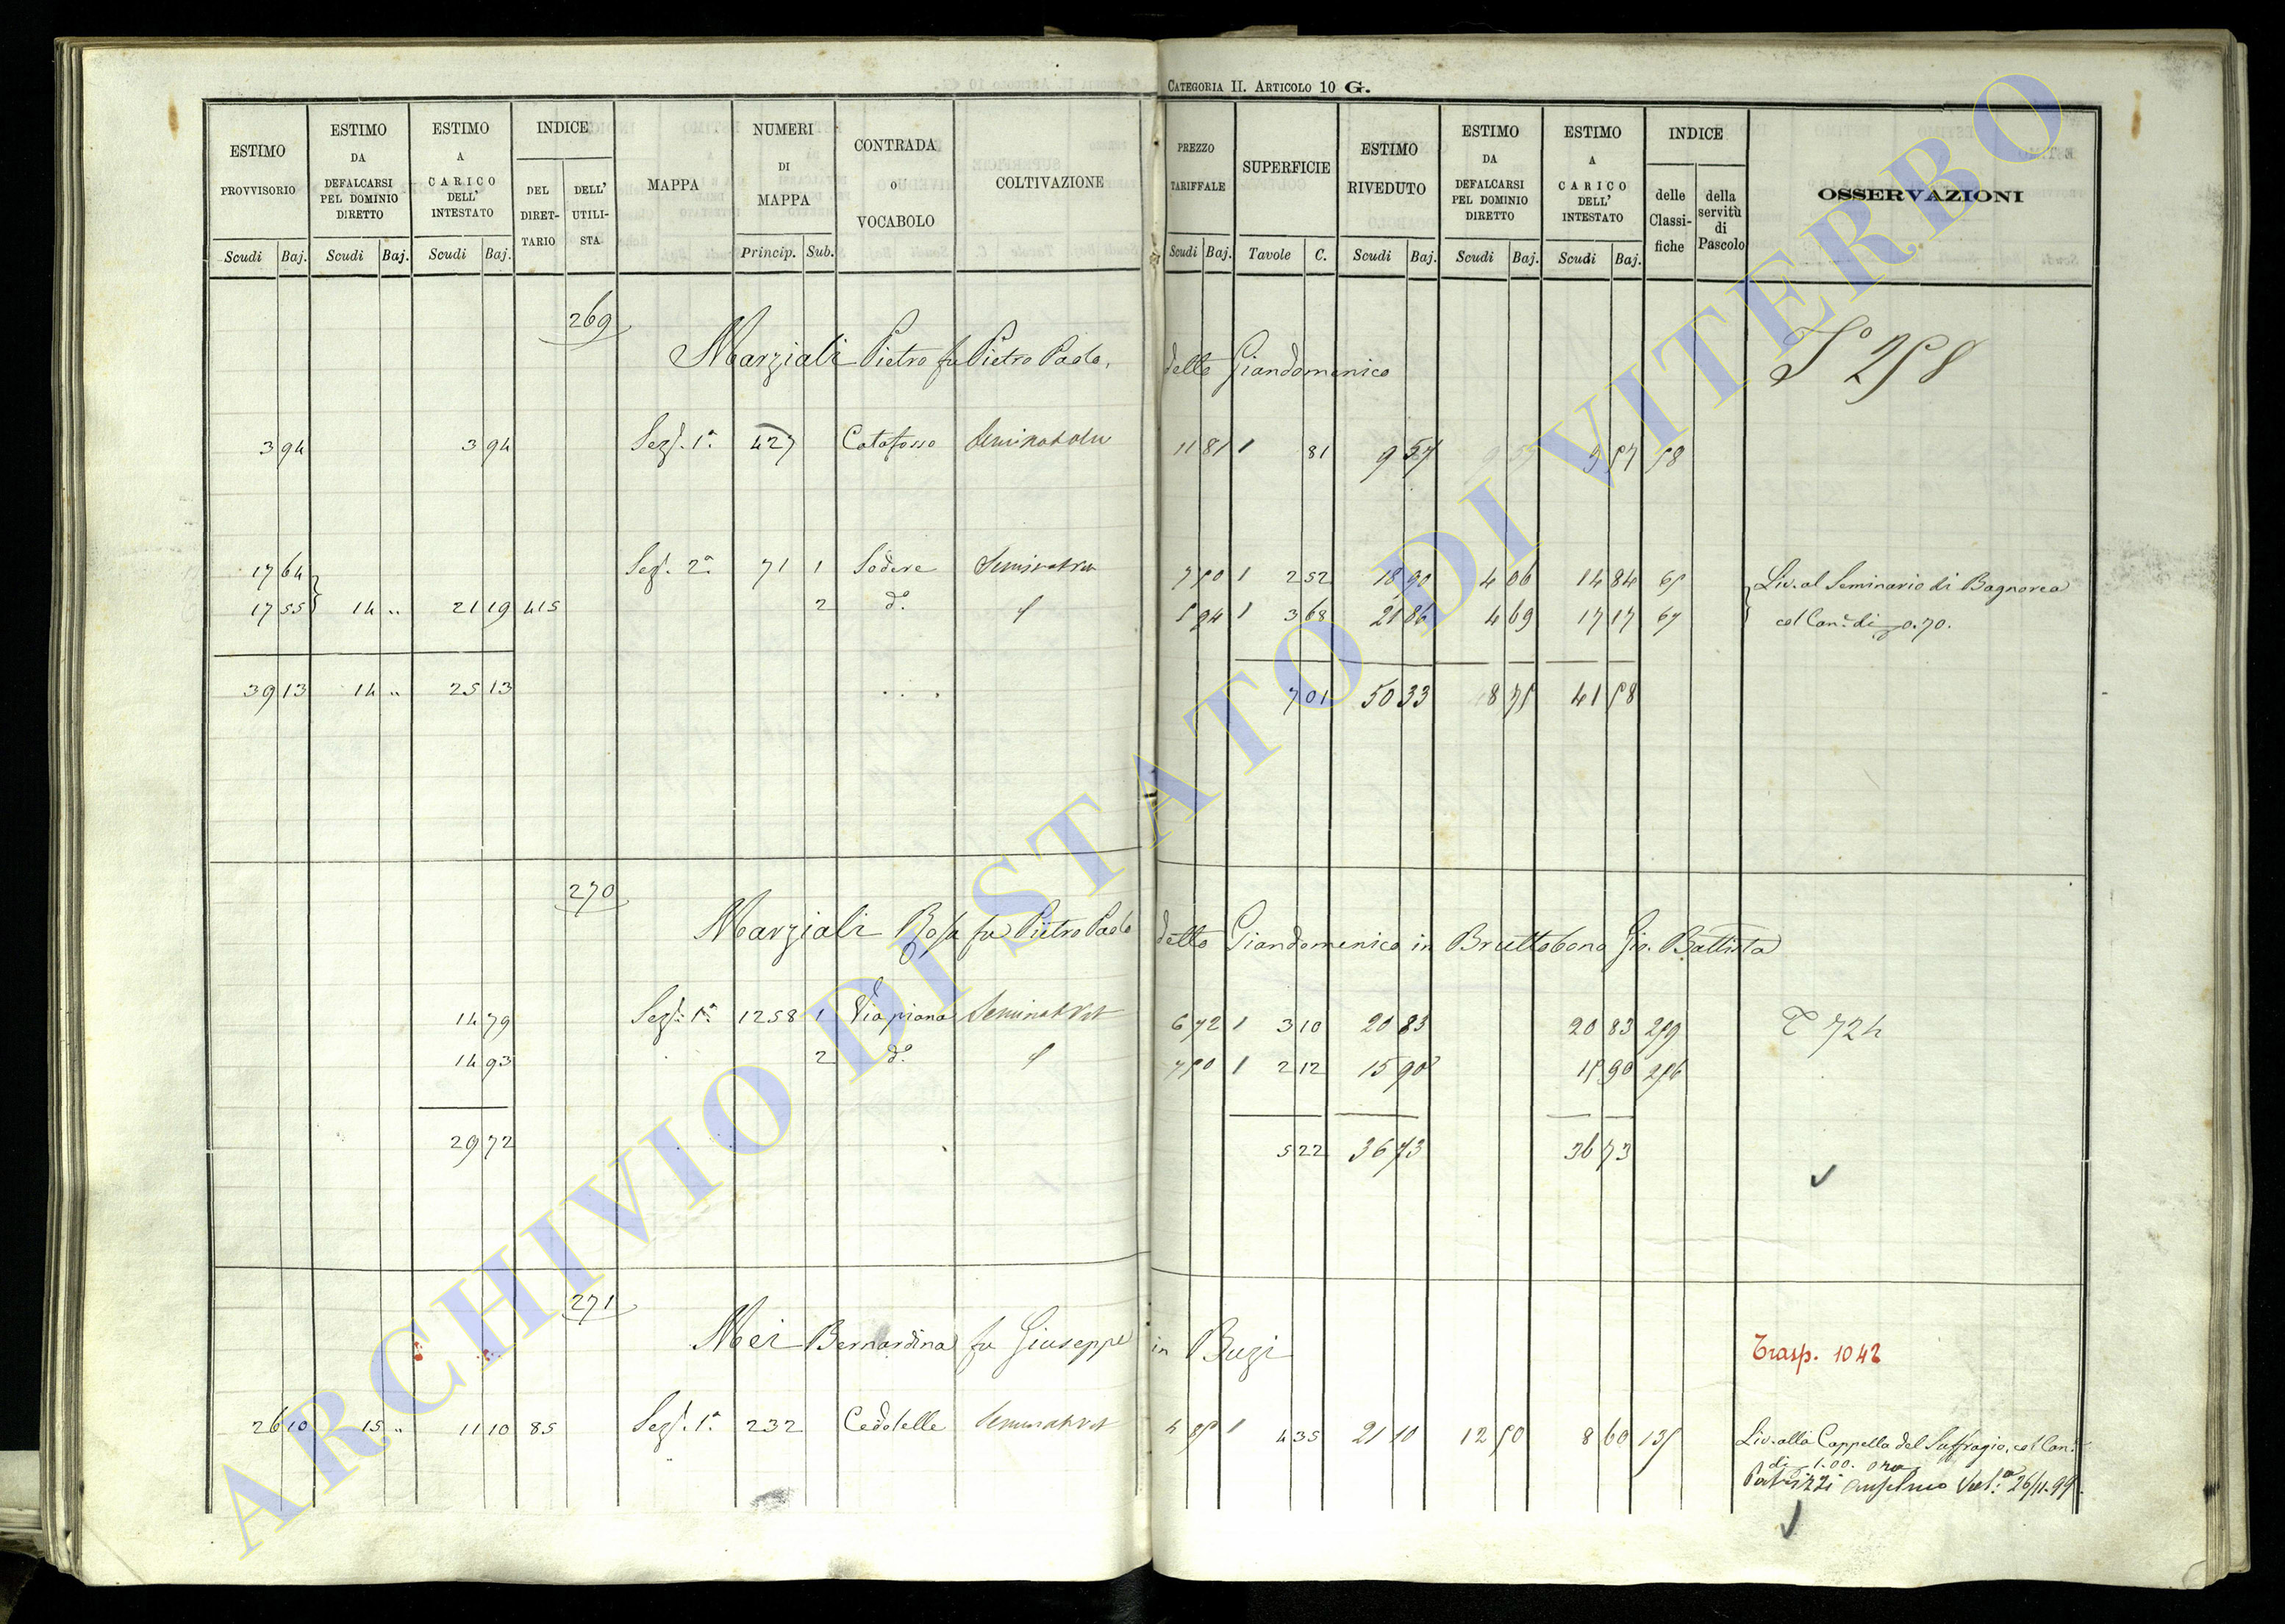 CATEGORIA II. ARTICOLO 10 G.
ESTIMO PROVVISORIO Scudi Baj.
ESTIMO DA DEFALCARSI PEL DOMINIO DIRETTO Scudi Baj.
ESTIMO A CARICO DELL' INTESTATO Scudi Baj.
INDICE DEL DIRETTARIO DELL' UTILISTA
MAPPA
NUMERI DI MAPPA Princip. Sub.
CONTRADA O VOCABOLO
COLTIVAZIONE
PREZZO TARIFFALE Scudi Baj.
SUPERFICIE Tavole C.
ESTIMO RIVEDUTO Scudi Baj.
ESTIMO DA DEFALCARSI PEL DOMINIO DIRETTO Scudi Baj.
ESTIMO A CARICO DELL' INTESTATO Scudi Baj.
INDICE delle Classifiche della servitù di Pascolo
OSSERVAZIONI
269
Marziali Pietro fu Pietro Paolo, detto Giandomenico
3 94 3 94 Sez. 1a 427 Catafosso 11 81 1 81 9 57 9 57 58
17 64 Sez. 2a 71 1 Sodere 7 50 1 2 52 18 90 4 06 14 84 Liv. al Seminario di Bagnorea
17 55 14 " 21 19 415 2 do. 5 94 1 3 68 21 86 4 69 17 17 67 col Can. di 0.70.
39 13 14 " 25 13 7 01 50 33 8 75 41 58
270
Marziali Rosa fu Pietro Paolo detto Giandomenico in Bruttobono Gio. Battista
14 79 Sez. 1a 1258 1 Via piana 6 72 1 3 10 20 83 20 83 259 T 724
14 93 2 do. 7 50 1 2 12 15 90 15 90 256
29 72 5 22 36 73 36 73
271
Mei Bernardina fu Giuseppe in Buzi Trasp. 1042
26 10 15 " 11 10 85 Sez. 1a 232 Cedolelle 4 85 1 4 35 21 10 12 50 8 60 135 Liv. alla Cappella del Suffragio, col Can.
di 1.00. ora
Patrizzi Anselmo Vol.a 26/11.99.
ARCHIVIO DI STATO DI VITERBO